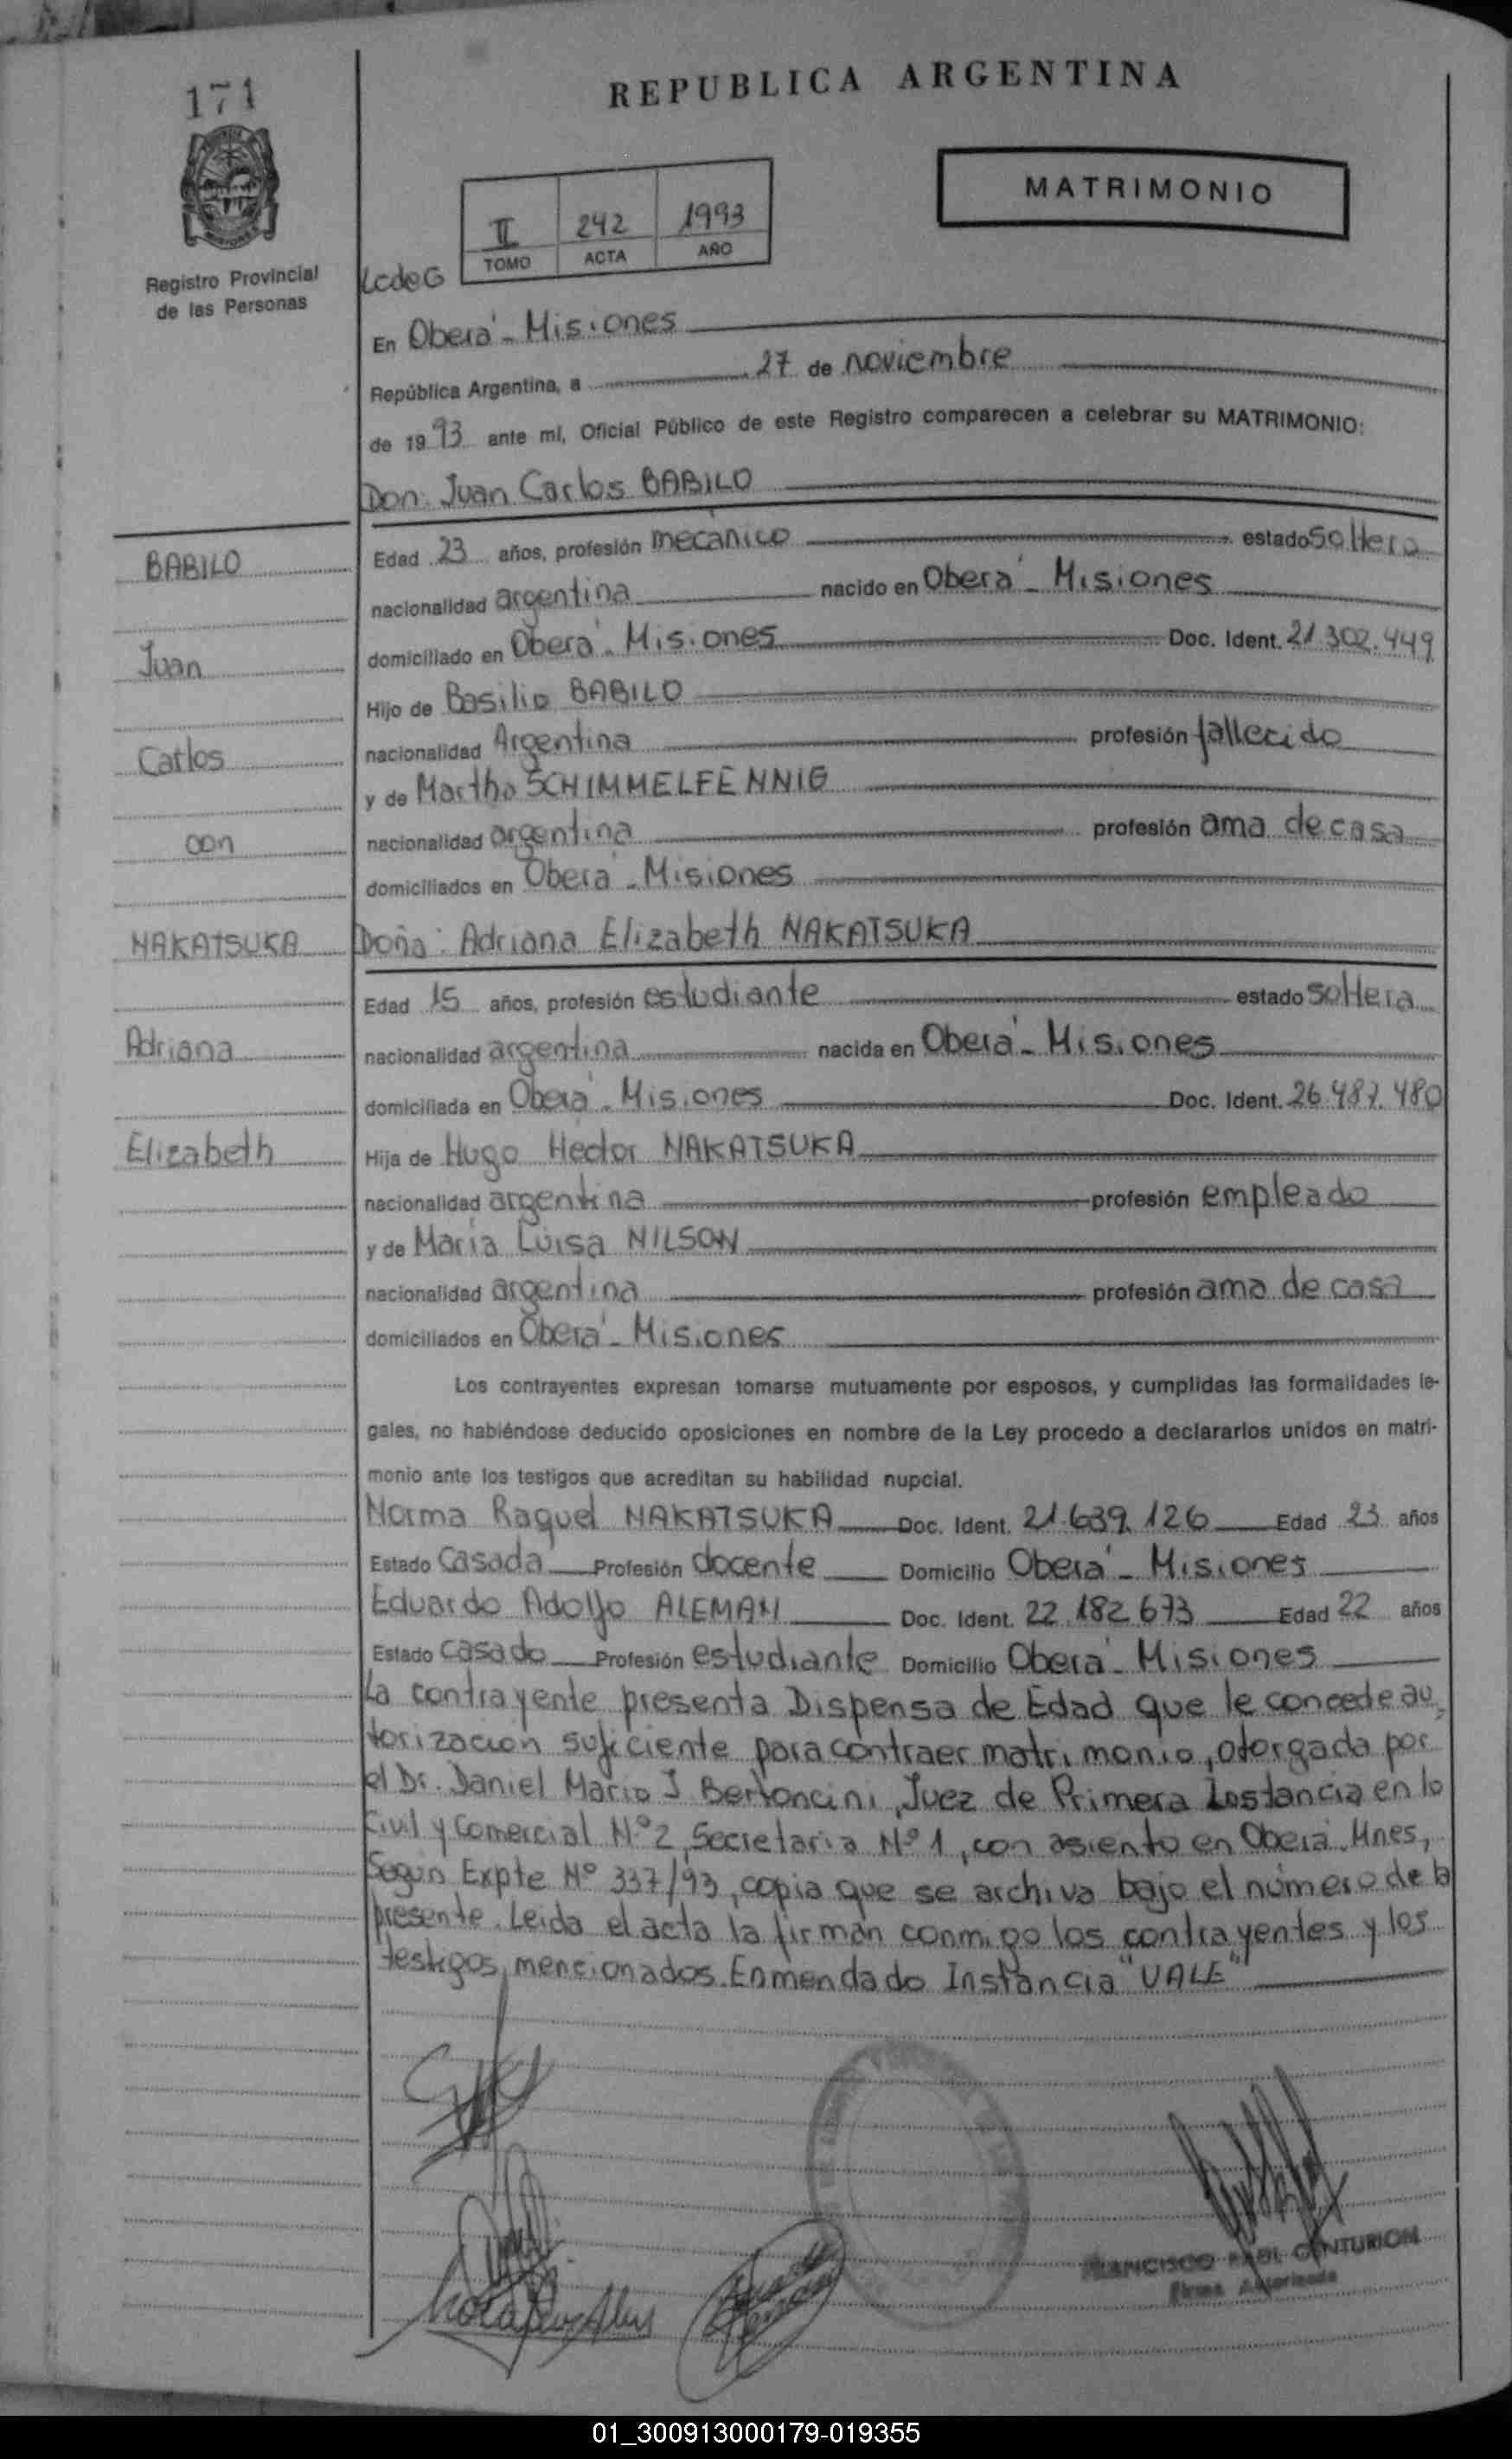 171
REPUBLICA ARGENTINA
MATRIMONIO
II 242 1993
TOMO ACTA AÑO
Registro Provincial
de las Personas
LcdeG
En Oberá - Misiones
República Argentina, a 27 de noviembre
de 1993 ante mí, Oficial Público de este Registro comparecen a celebrar su MATRIMONIO:
Don: Juan Carlos BABILO
BABILO
Edad 23 años, profesión mecánico estado soltero
nacionalidad argentina nacido en Oberá - Misiones
Juan
domiciliado en Oberá - Misiones Doc. Ident. 21.302.449
Hijo de Basilio BABILO
Carlos
nacionalidad Argentina profesión fallecido
y de Martha SCHIMMELFENNIG
con
nacionalidad argentina profesión ama de casa
domiciliados en Oberá - Misiones
NAKATSUKA
Doña: Adriana Elizabeth NAKATSUKA
Edad 15 años, profesión estudiante estado soltera
Adriana
nacionalidad argentina nacida en Oberá - Misiones
domiciliada en Oberá - Misiones Doc. Ident. 26.487.480
Elizabeth
Hija de Hugo Hector NAKATSUKA
nacionalidad argentina profesión empleado
y de María Luisa NILSON
nacionalidad argentina profesión ama de casa
domiciliados en Oberá - Misiones
Los contrayentes expresan tomarse mutuamente por esposos, y cumplidas las formalidades le-
gales, no habiéndose deducido oposiciones en nombre de la Ley procedo a declararlos unidos en matri-
monio ante los testigos que acreditan su habilidad nupcial.
Norma Raquel NAKATSUKA Doc. Ident. 21.639.126 Edad 23 años
Estado Casada Profesión docente Domicilio Oberá - Misiones
Eduardo Adolfo ALEMAN Doc. Ident. 22.182.673 Edad 22 años
Estado casado Profesión estudiante Domicilio Oberá - Misiones
La contrayente presenta Dispensa de Edad que le concede au-
torización suficiente para contraer matrimonio, otorgada por
el Dr. Daniel Mario J Bertoncini, Juez de Primera Instancia en lo
Civil y Comercial Nº 2, Secretaria Nº 1, con asiento en Oberá, Mnes,
Según Expte Nº 337/93, copia que se archiva bajo el número de la
presente. Leida el acta la firman conmigo los contrayentes y los
testigos, mencionados. Enmendado Instancia "VALE"
FRANCISCO RAUL CENTURION
Firma Autorizada
01_300913000179-019355